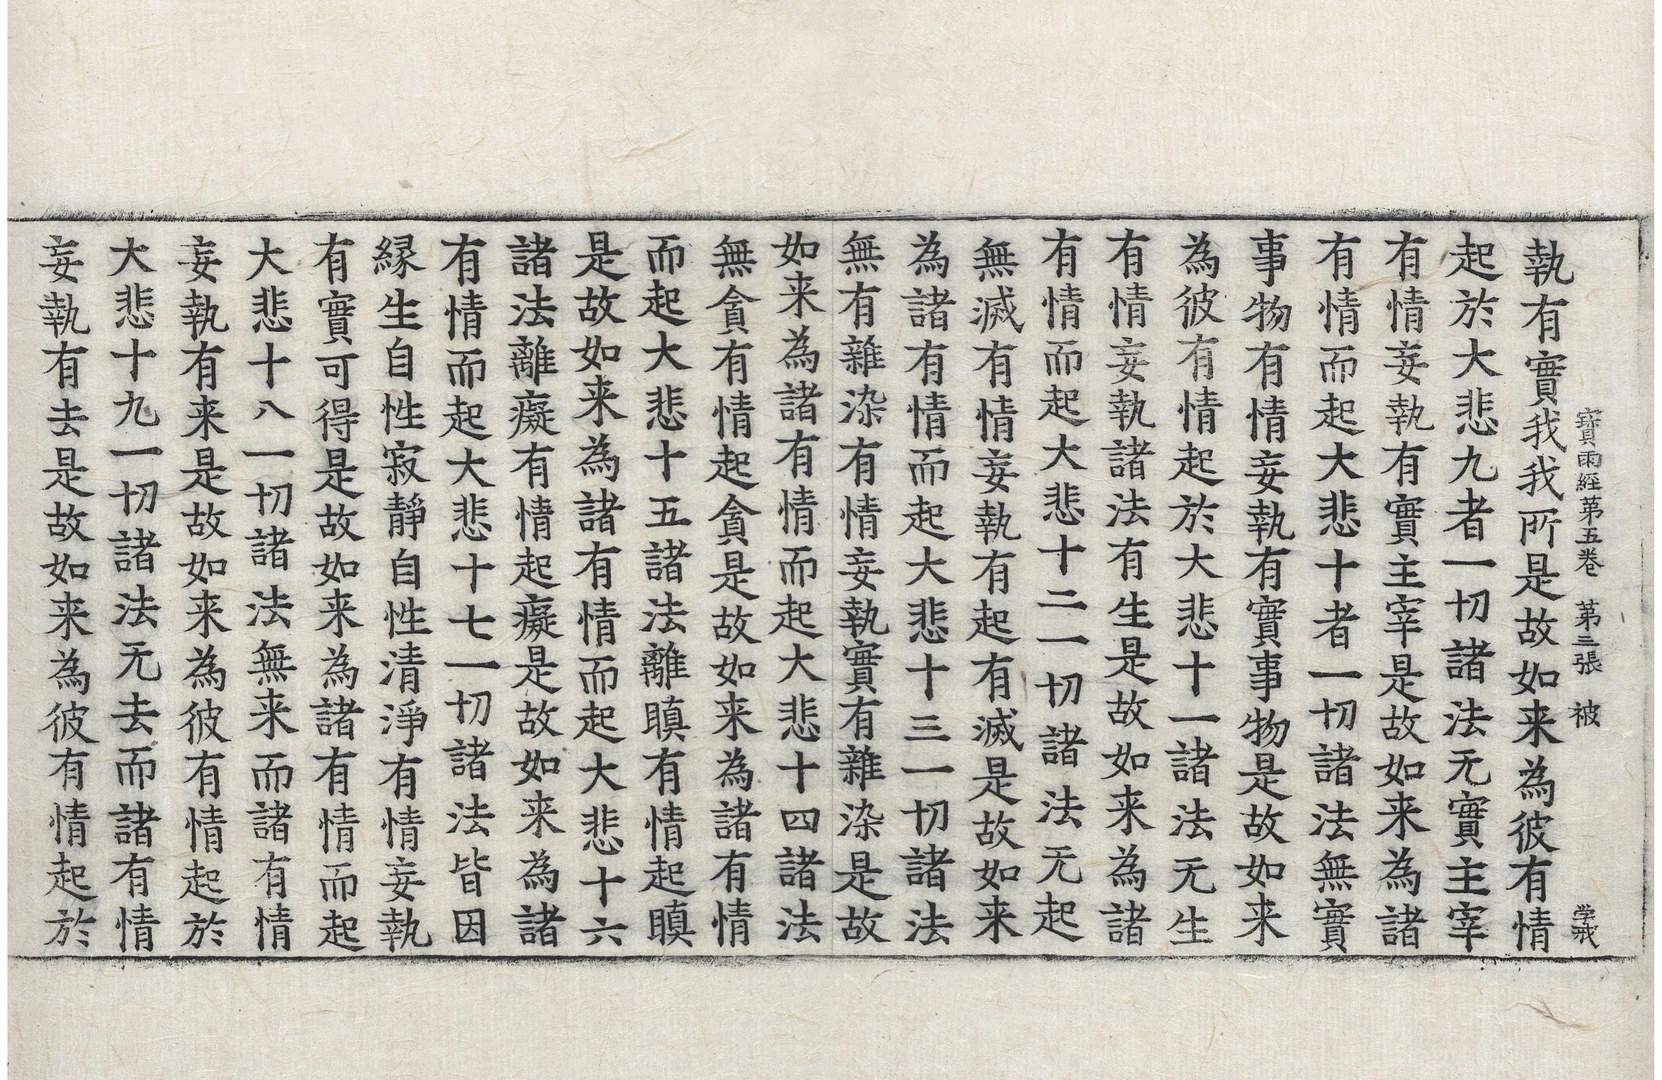 寳雨經第五卷 第三張 被 學戒
執有實我我所是故如来為彼有情
起於大悲九者一切諸法无實主宰
有情妄執有實主宰是故如来為諸
有情而起大悲十者一切諸法無實
事物有情妄執有實事物是故如来
為彼有情起於大悲十一諸法无生
有情妄執諸法有生是故如来為諸
有情而起大悲十二一切諸法无起
無滅有情妄執有起有滅是故如来
為諸有情而起大悲十三一切諸法
無有雜染有情妄執實有雜染是故
如来為諸有情而起大悲十四諸法
無貪有情起貪是故如来為諸有情
而起大悲十五諸法離瞋有情起瞋
是故如来為諸有情而起大悲十六
諸法離癡有情起癡是故如来為諸
有情而起大悲十七一切諸法皆因
縁生自性寂靜自性清淨有情妄執
有實可得是故如来為諸有情而起
大悲十八一切諸法無来而諸有情
妄執有来是故如来為彼有情起於
大悲十九一切諸法无去而諸有情
妄執有去是故如来為彼有情起於